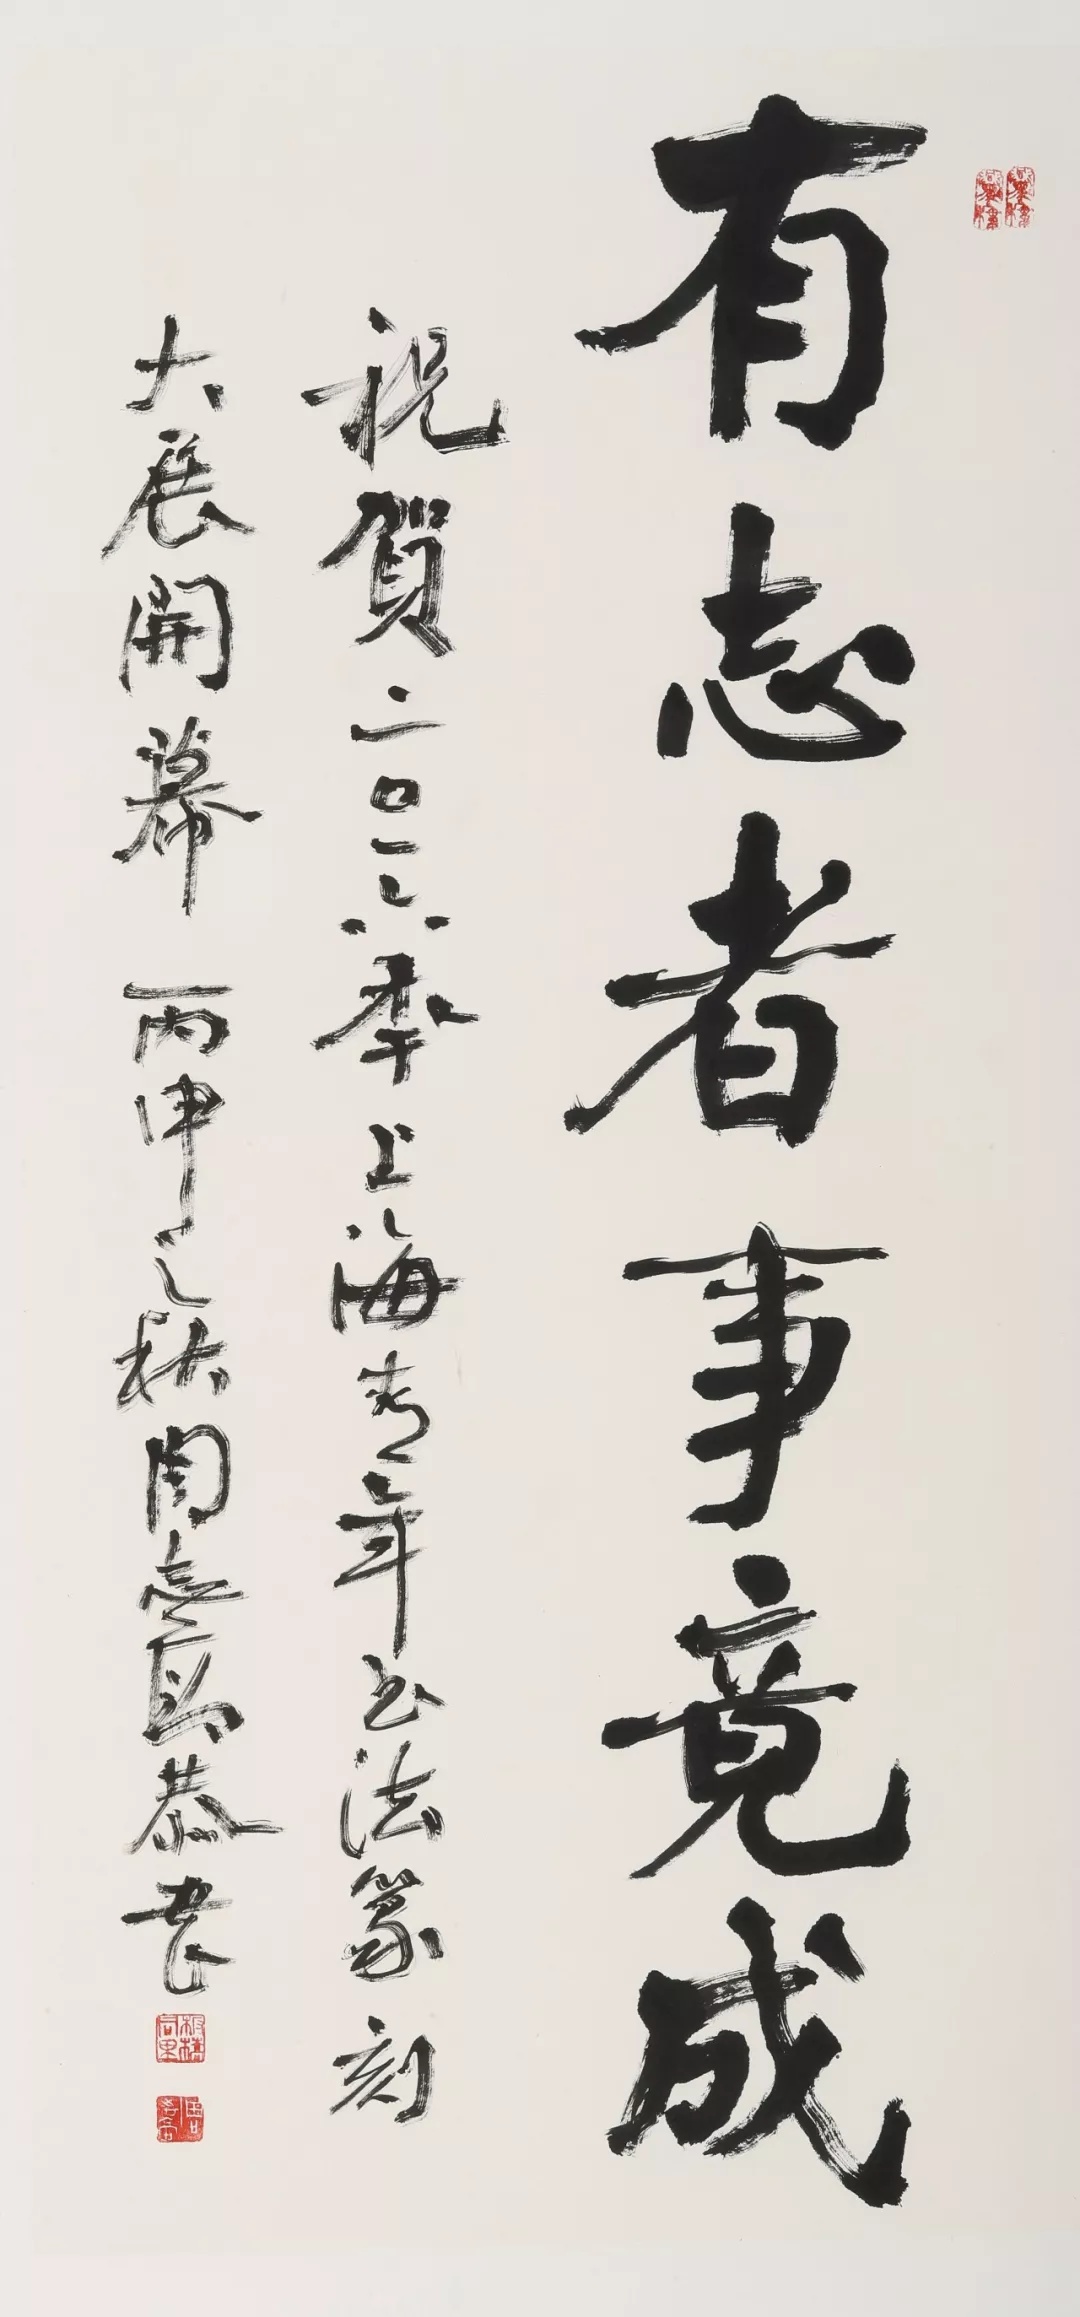 有志者事竟成
祝賀二〇一六秊上海青年书法篆刻
大展開幕 丙申之秋周志高恭書
板橋同里